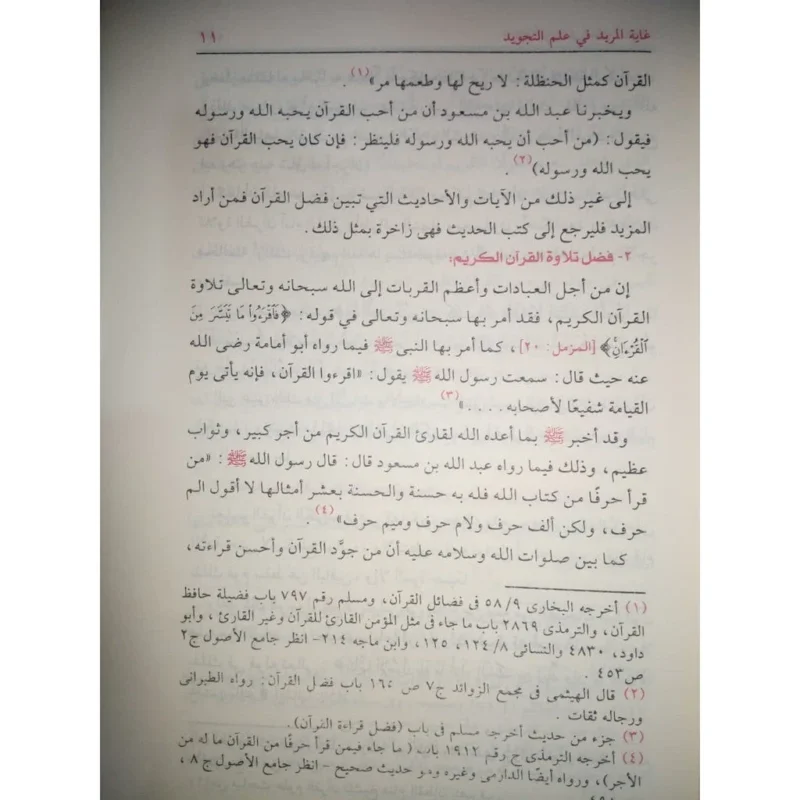 غاية المريد في علم التجويد ١١
القرآن كمثل الحنظلة : لا ريح لها وطعمها مر»(١) .
ويخبرنا عبد الله بن مسعود أن من أحب القرآن يحبه الله ورسوله
فيقول : (من أحب أن يحبه الله ورسوله فلينظر : فإن كان يحب القرآن فهو
يحب الله ورسوله)(٢) .
إلى غير ذلك من الآيات والأحاديث التي تبين فضل القرآن فمن أراد
المزيد فليرجع إلى كتب الحديث فهى زاخرة بمثل ذلك .
٢- فضل تلاوة القرآن الكريم:
إن من أجل العبادات وأعظم القربات إلى الله سبحانه وتعالى تلاوة
القرآن الكريم، فقد أمر بها سبحانه وتعالى في قوله : ﴿فَٱقْرَءُوا۟ مَا تَيَسَّرَ مِنَ
ٱلْقُرْءَانِ﴾ [المزمل: ٢٠]، كما أمر بها النبى ﷺ فيما رواه أبو أمامة رضى الله
عنه حيث قال : سمعت رسول الله ﷺ يقول : «اقرءوا القرآن، فإنه يأتى يوم
القيامة شفيعًا لأصحابه . . . .»(٣)
وقد أخبر ﷺ بما أعده الله لقارئ القرآن الكريم من أجر كبير، وثواب
عظيم، وذلك فيما رواه عبد الله بن مسعود قال : قال رسول الله ﷺ : «من
قرأ حرفًا من كتاب الله فله به حسنة والحسنة بعشر أمثالها لا أقول الم
حرف، ولكن ألف حرف ولام حرف وميم حرف»(٤) .
كما بين صلوات الله وسلامه عليه أن من جوَّد القرآن وأحسن قراءته،
(١) أخرجه البخارى ٩/ ٥٨ فى فضائل القرآن، ومسلم رقم ٧٩٧ باب فضيلة حافظ
القرآن، والترمذى ٢٨٦٩ باب ما جاء فى مثل المؤمن القارئ للقرآن وغير القارئ، وأبو
داود، ٤٨٣٠ والنسائى ٨/ ١٢٤، ١٢٥، وابن ماجه ٢١٤- انظر جامع الأصول ج٢
ص٤٥٣ .
(٢) قال الهيثمى فى مجمع الزوائد ج٧ ص ١٦٥ باب فضل القرآن: رواه الطبرانى
ورجاله ثقات .
(٣) جزء من حديث أخرجه مسلم فى باب (فضل قراءة القرآن).
(٤) أخرجه الترمذى ج رقم ١٩١٢ باب ( ما جاء فيمن قرأ حرفًا من القرآن ما له من
الأجر)، ورواه أيضًا الدارمى وغيره وهو حديث صحيح - انظر جامع الأصول ج ٨ ،